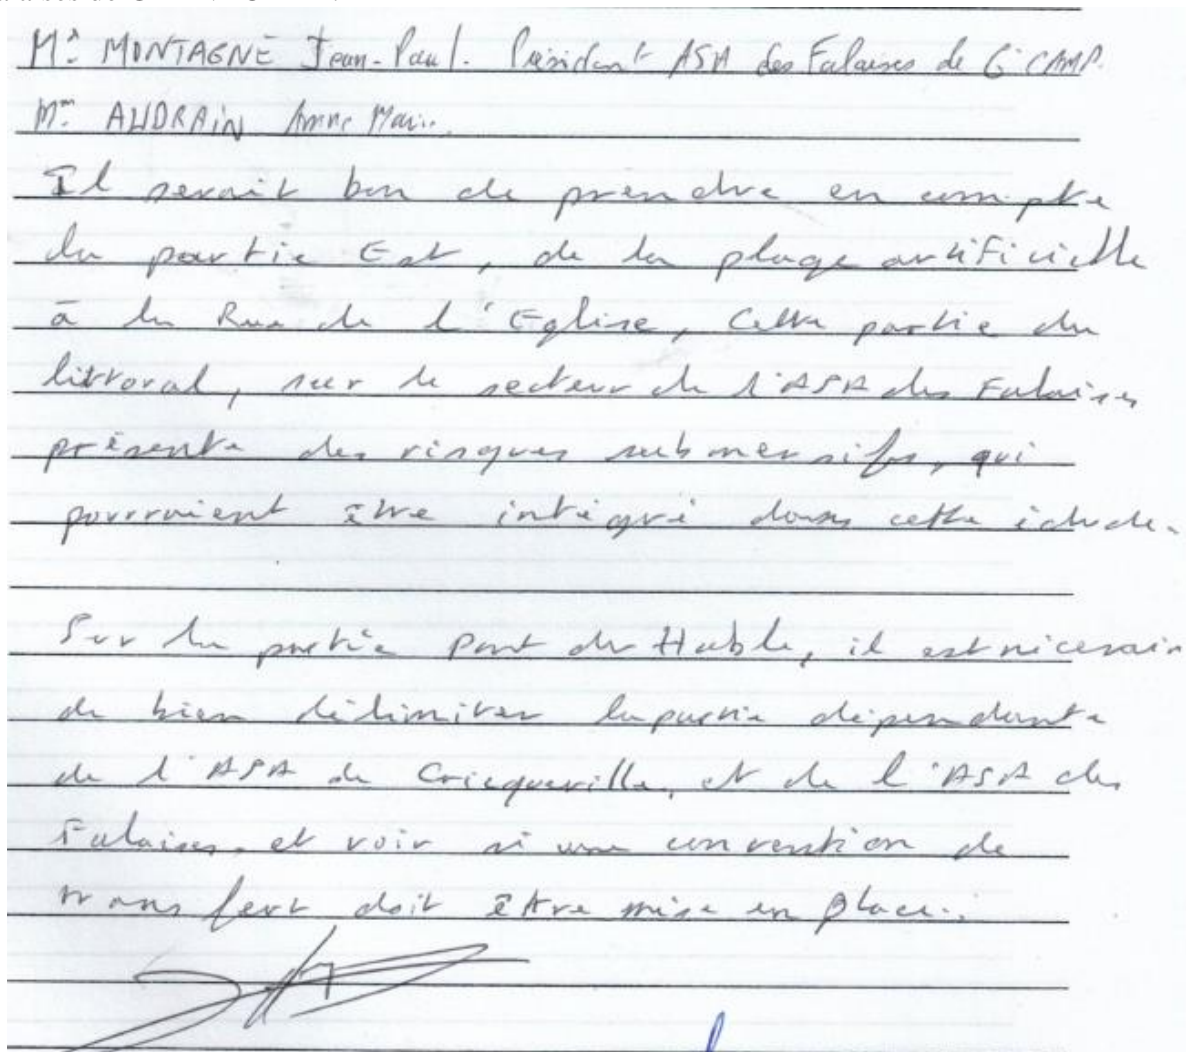 Mr MONTAGNE Jean-Paul. Président ASA des Falaises de G CAMP.
Mme AUDRAIN Anne Marie.
Il serait bon de prendre en compte
la partie Est, de la plage artificielle
à la Rue de l'Eglise, Cette partie du
littoral, sur le secteur de l'ASA des Falaises
présente des risques submersifs, qui
pourraient être intégré dans cette étude.
Sur la partie Pont du Hable, il est nécessaire
de bien délimiter la partie dépendante
de l'ASA de Cricqueville, et de l'ASA des
Falaises, et voir si une convention de
transfert doit être mise en place..